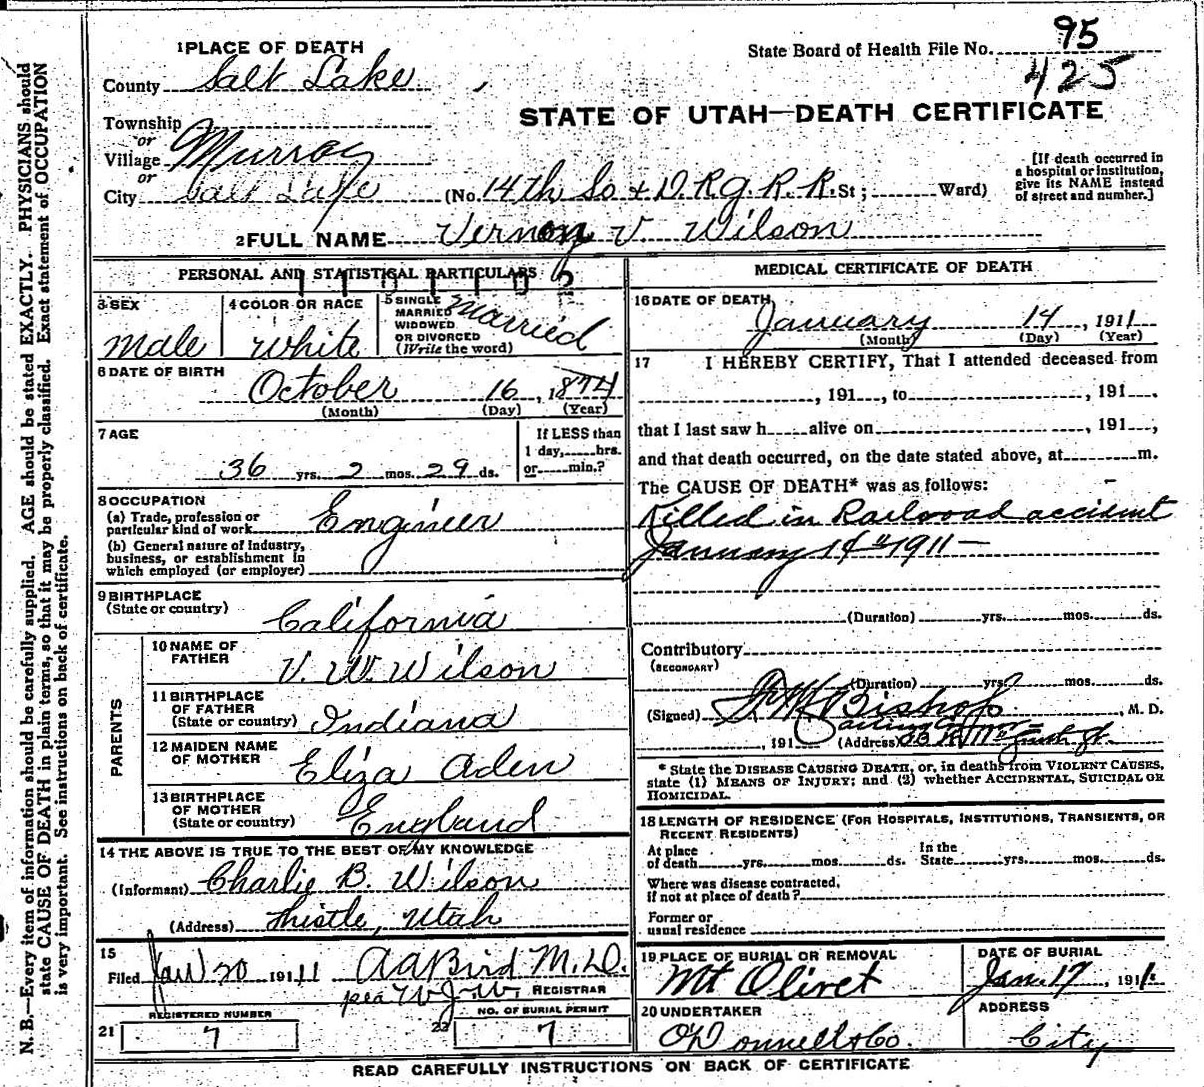 1 PLACE OF DEATH
County Salt Lake
Township
or
Village Murray
or
City Salt Lake (No. 14th So + D. R. G. R. R. St; Ward)
State Board of Health File No. 95
425
STATE OF UTAH—DEATH CERTIFICATE
[If death occurred in
a hospital or institution,
give its NAME instead
of street and number.]
2 FULL NAME Vernon V Wilson
PERSONAL AND STATISTICAL PARTICULARS
3 SEX
Male
4 COLOR OR RACE
White
5 SINGLE
MARRIED
WIDOWED
OR DIVORCED
(Write the word)
Married
6 DATE OF BIRTH
October 16, 1874
(Month) (Day) (Year)
7 AGE
36 yrs. 2 mos. 29 ds.
If LESS than
1 day, hrs.
or min.?
8 OCCUPATION
(a) Trade, profession or
particular kind of work Engineer
(b) General nature of industry,
business, or establishment in
which employed (or employer)
9 BIRTHPLACE
(State or country)
California
PARENTS
10 NAME OF
FATHER
V. W. Wilson
11 BIRTHPLACE
OF FATHER
(State or country) Indiana
12 MAIDEN NAME
OF MOTHER
Eliza Aden
13 BIRTHPLACE
OF MOTHER
(State or country) England
14 THE ABOVE IS TRUE TO THE BEST OF MY KNOWLEDGE
(Informant) Charlie B. Wilson
(Address) Thistle, Utah
15
Filed Jan 20 1911 A A Bird M. D.
REGISTRAR
REGISTERED NUMBER
21 7
NO. OF BURIAL PERMIT
22 7
MEDICAL CERTIFICATE OF DEATH
16 DATE OF DEATH
January 14, 1911
(Month) (Day) (Year)
17 I HEREBY CERTIFY, That I attended deceased from
, 191 , to , 191 .
that I last saw h alive on , 191 ,
and that death occurred, on the date stated above, at m.
The CAUSE OF DEATH* was as follows:
Killed in Railroad accident
January 14" 1911 —
(Duration) yrs. mos. ds.
Contributory
(SECONDARY)
(Duration) yrs. mos. ds.
(Signed) Bishop, M. D.
, 191 (Address)
* State the DISEASE CAUSING DEATH, or, in deaths from VIOLENT CAUSES,
state (1) MEANS OF INJURY; and (2) whether ACCIDENTAL, SUICIDAL OR
HOMICIDAL.
18 LENGTH OF RESIDENCE (FOR HOSPITALS, INSTITUTIONS, TRANSIENTS, OR
RECENT RESIDENTS)
At place
of death yrs. mos. ds.
In the
State yrs. mos. ds.
Where was disease contracted,
if not at place of death?
Former or
usual residence
19 PLACE OF BURIAL OR REMOVAL
Mt Olivet
DATE OF BURIAL
Jan. 17, 1911.
20 UNDERTAKER
O'Donnell & Co.
ADDRESS
City
READ CAREFULLY INSTRUCTIONS ON BACK OF CERTIFICATE
N. B.—Every item of information should be carefully supplied. AGE should be stated EXACTLY. PHYSICIANS should
state CAUSE OF DEATH in plain terms, so that it may be properly classified. Exact statement of OCCUPATION
is very important. See instructions on back of certificate.